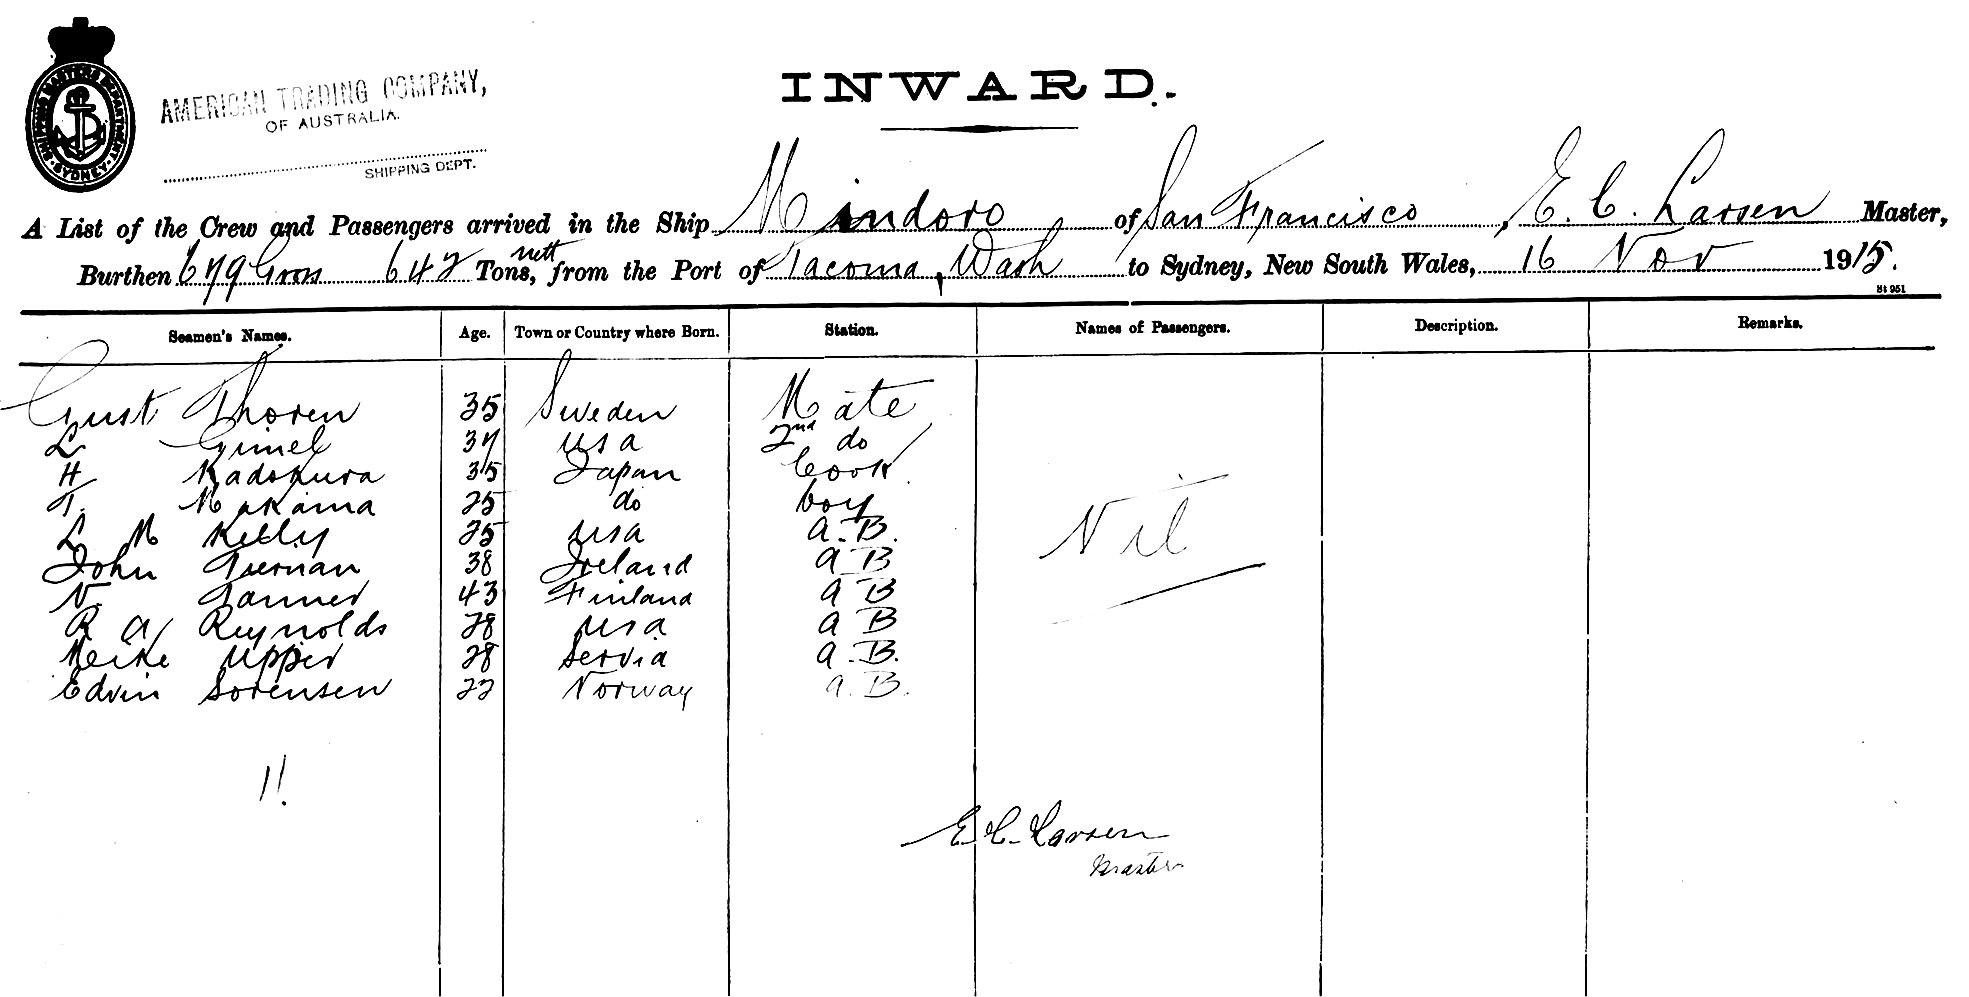 SHIPPING MASTERS DEPARTMENT
SYDNEY
AMERICAN TRADING COMPANY,
OF AUSTRALIA.
SHIPPING DEPT.
INWARD.
A List of the Crew and Passengers arrived in the Ship Mindoro of San Francisco, E. C. Larsen Master,
Burthen 679 Gross 642 nett Tons, from the Port of Tacoma, Wash to Sydney, New South Wales, 16 Nov 1915.
St 951
Seamen's Names. Age. Town or Country where Born. Station. Names of Passengers. Description. Remarks.
Gust Thoren 35 Sweden Mate
L Gimel 37 USA 2nd do
H Kadokura 35 Japan Cook
T. Makaina 25 do boy
L M Kelly 25 USA A.B.
John Tiernan 38 Ireland A B
N. Tanner 43 Finland A B
R A Reynolds 28 USA A B
Meike Upper 28 Servia A.B.
Edvin Sorensen 22 Norway A.B.
Nil
11
E. C. Larsen
Master